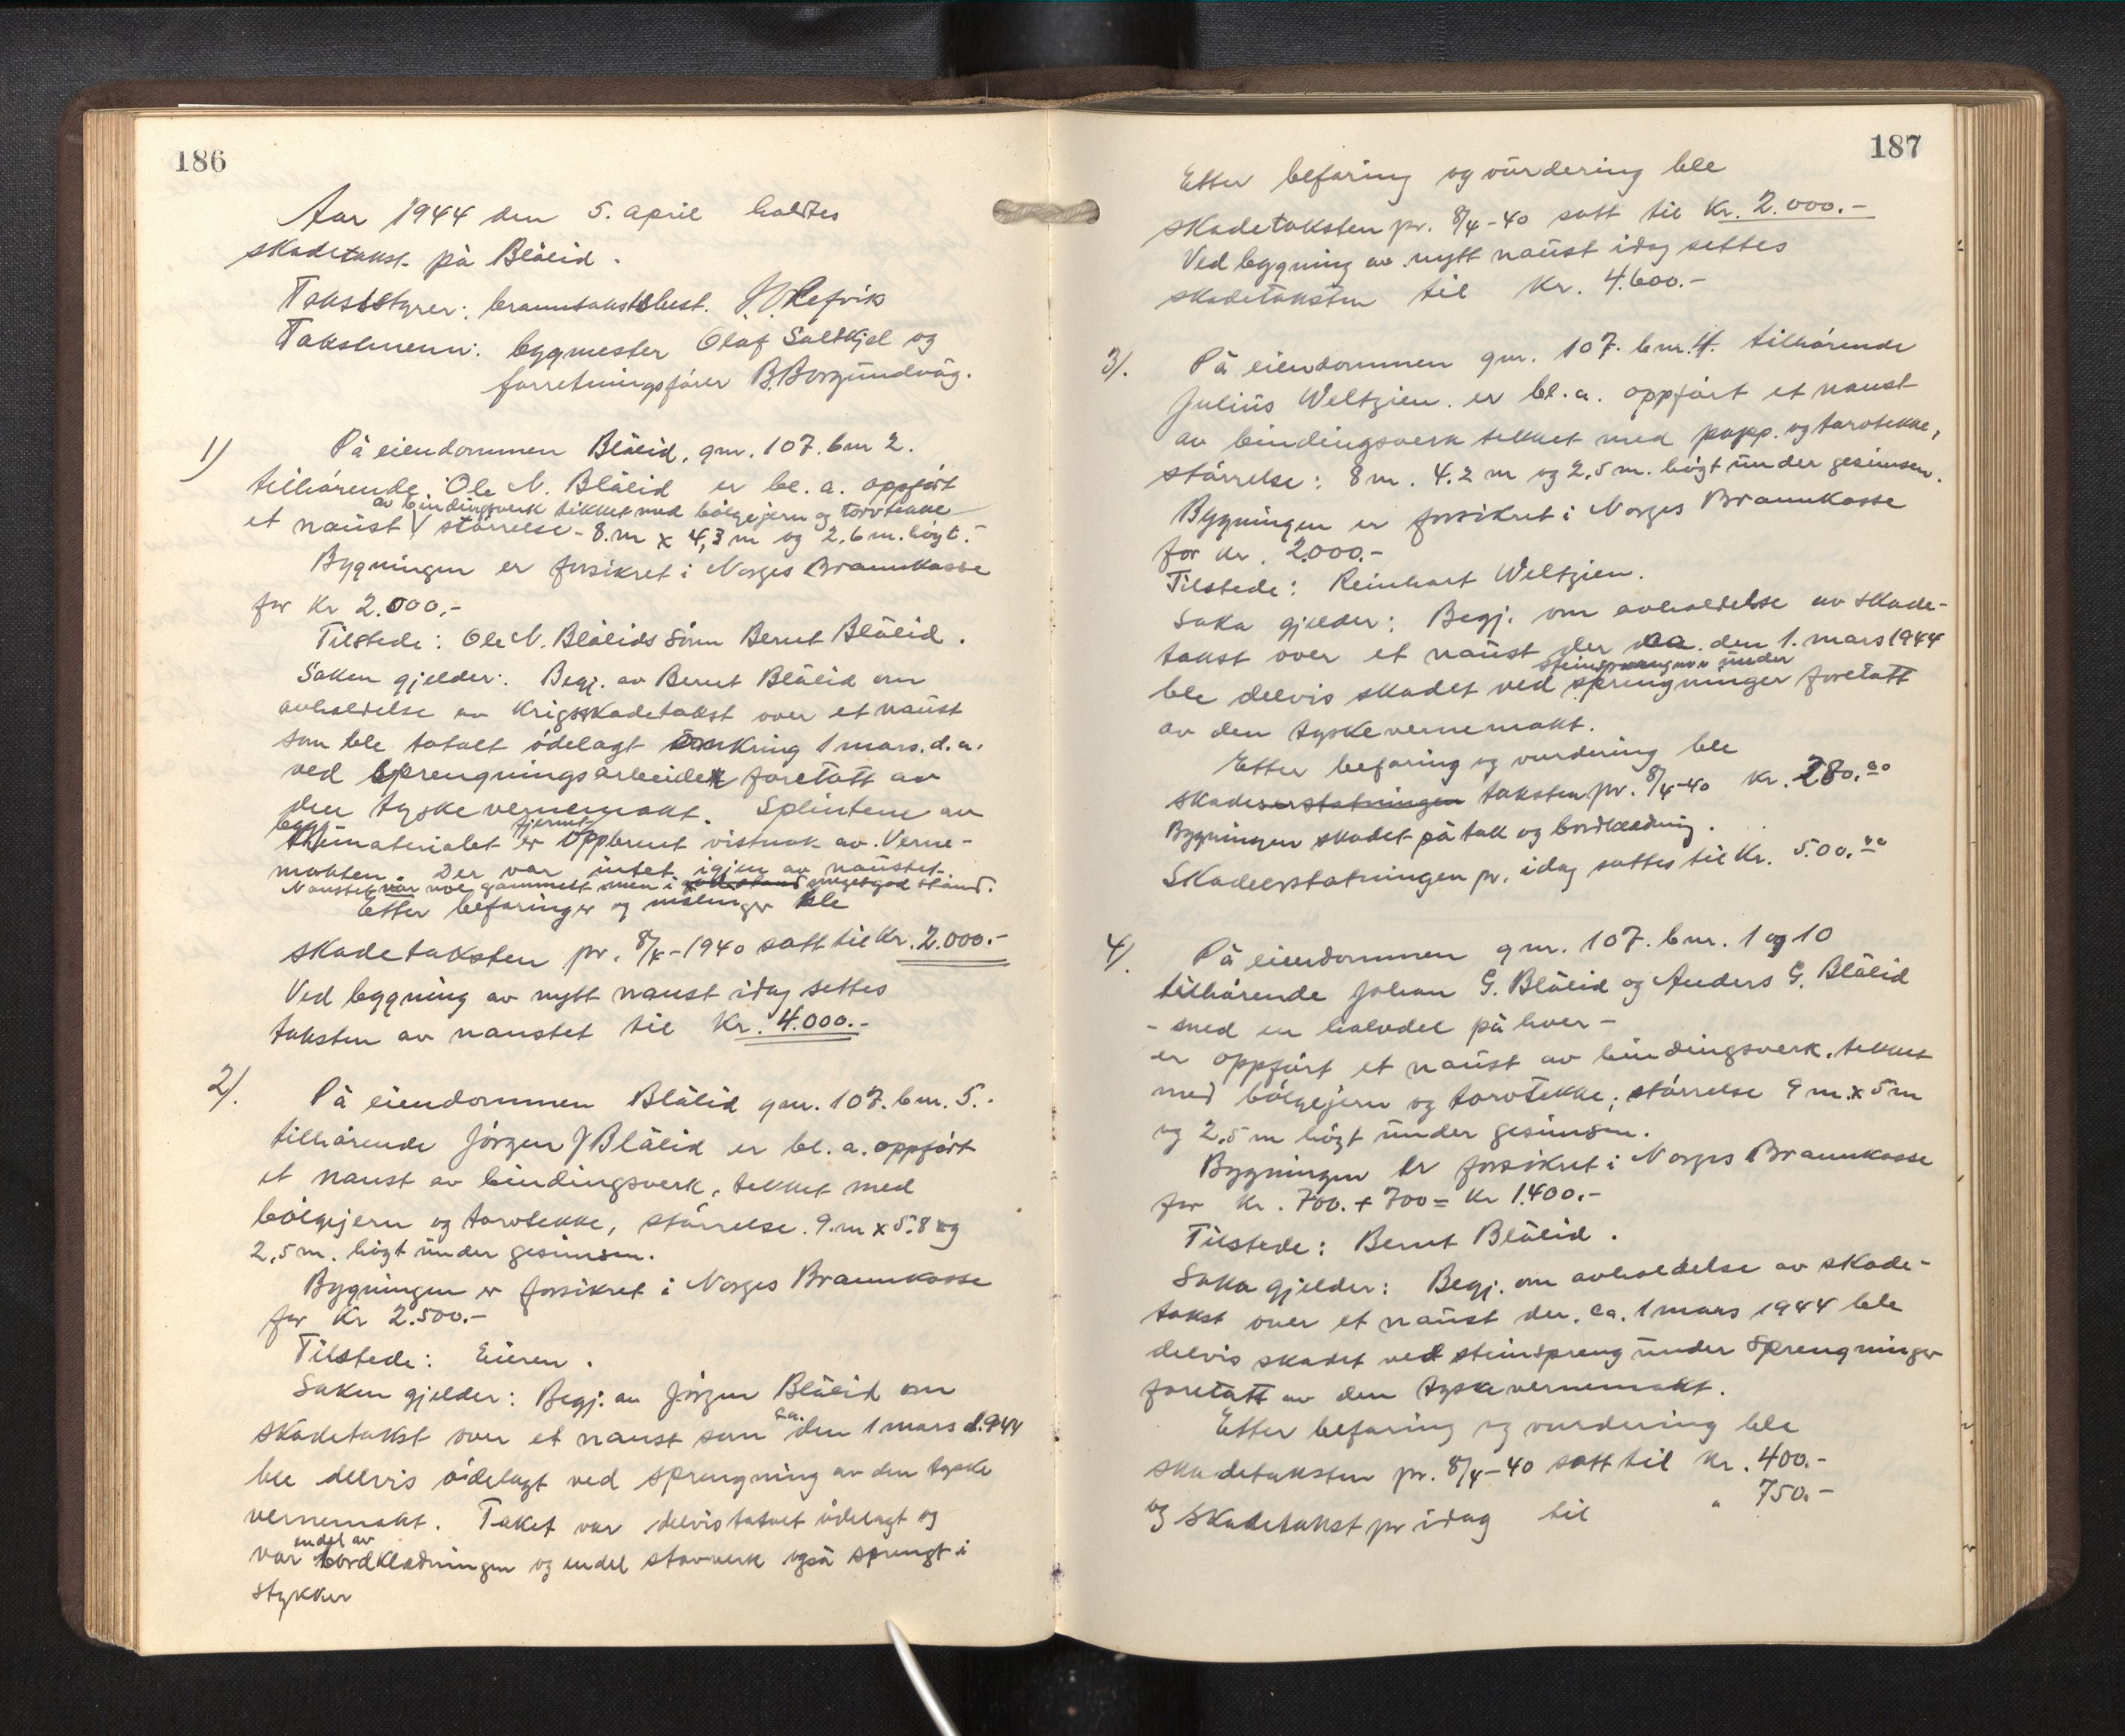 186
Aar 1944 den 5. april holdtes
skadetakst på Blålid.
Takststyrer: branntakstbest. Refvik
Takstmenn: bygmester Olaf Saltkjel og
forretningsfører B. Borgundvåg.
1) På eiendommen Blålid, gnr. 107. bnr 2.
tilhørende Ole N. Blålid er bl. a. oppført
av bindingsverk tekket med bølgejern og torvtekke
et naust størrelse - 8.m x 4,3 m og 2.6 m. høyt.-
Bygningen er forsikret i Norges Brannkasse
for Kr 2.000.-
Tilstede: Ole N. Blålids sønn Bernt Blålid.
Saken gjelder: Begj. av Bernt Blålid om
avholdelse av krigsskadetakst over et naust
som ble totalt ødelagt omkring 1 mars. d.a.
ved sprengningsarbeider foretatt av
den tyske vernemakt. Splintene av
bygg fjernet
materialet er oppbrent vistnok av Verne-
makten. Der var intet igjen av naustet.
Naustet var noe gammelt men i meget god stand.
Etter befaringer og målinger ble
skadetaksten pr. 8/4-1940 satt til Kr. 2.000.-
Ved bygning av nytt naust idag settes
taksten av naustet til Kr. 4.000.-
2). På eiendommen Blålid gnr. 107. bnr. 5.
tilhørende Jørgen J Blålid er bl. a. oppført
et naust av bindingsverk, tekket med
bølgejern og torvtekke, størrelse. 9.m x 5.8 og
2,5 m. høgt under gesimsen.
Bygningen er forsikret i Norges Brannkasse
for Kr 2.500.-
Tilstede: Eieren.
Saken gjelder: Begj. av Jørgen Blålid om
ca.
skadetakst over et naust som den 1 mars 1944
ble delvis ødelagt ved sprengning av den tyske
vernemakt. Taket var delvis totalt ødelagt og
endel av
var bordkledningen og endel stavverk også sprengt i
stykker
187
Etter befaring og vurdering ble
skadetaksten pr. 8/4-40 satt til Kr. 2.000.-
Ved bygning av nytt naust idag settes
skadetaksten til Kr. 4.600.-
3). På eiendommen gnr. 107. bnr. 4. tilhørende
Julius Weltzien. er bl. a. oppført et naust
av bindingsverk tekket med papp. og torvtekke,
størrelse: 8 m. 4.2 m og 2,5 m. høgt under gesimsen.
Bygningen er forsikret i Norges Brannkasse
for kr. 2.000.-
Tilstede: Reinhart Weltzien.
Saka gjelder: Begj. om avholdelse av skade-
takst over et naust der ca. den 1. mars 1944
steinspreng under
ble delvis skadet ved sprengninger foretatt
av den tyske vernemakt.
Etter befaring og vurdering ble
skadeserstatningen taksten pr. 8/4-40 Kr. 280.00
Bygningen skadet på tak og bordkledning.
Skadeerstatningen pr. idag sattes til Kr. 500.00
4). På eiendommen gnr. 107. bnr. 1 og 10
tilhørende Johan G. Blålid og Anders G. Blålid
- med en halvdel på hver -
er oppført et naust av bindingsverk, tekket
med bølgejern og torvtekke; størrelse 9 m. x 5 m
og 2,5 m høgt under gesimsen.
Bygningen er forsikret i Norges Brannkasse
for Kr. 700. + 700 = Kr 1.400.-
Tilstede: Bernt Blålid.
Saka gjelder: Begj. om avholdelse av skade-
takst over et naust der. ca. 1 mars 1944 ble
delvis skadet ved steinspreng under sprengninger
foretatt av den tyske vernemakt.
Etter befaring og vurdering ble
skadetaksten pr. 8/4-40 satt til Kr. 400.-
og skadetakst pr idag til " 750.-